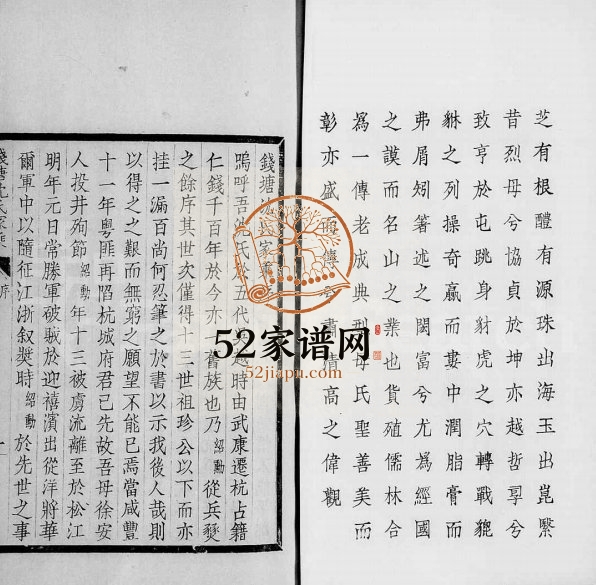 芝有根醴有源珠出海玉出崑繄
昔烈母兮協貞於坤亦越哲孠兮
致亨於屯跳身豺虎之穴轉戰貔
貅之列操奇贏而婁中潤脂膏而
弗屑矧著述之閎富兮尤為經國
之謨而名山之業也貨殖儒林合
為一傳老成典型母氏聖善美而
彰亦盛而傳兮書清高之偉觀
錢塘沈氏家乘
嗚呼吾沈氏於五代吳越時由武康遷杭占籍
仁錢千百年於今亦一舊族也乃紹勳從兵燹
之餘序其世次僅得十三世祖珍公以下而亦
挂一漏百尚何忍筆之於書以示我後人哉則
以得之之艱而無窮之願望不能已焉當咸豐
十一年粵匪再陷杭城府君已先故吾母徐安
人投井殉節紹勳年十三被虜流離至於松江
明年元日常勝軍破賊於迎禧濱出從洋將華
爾軍中以隨征江浙叙獎時紹勳於先世之事
錢塘沈氏家乘 序 一
52家谱网
52jiapu.com